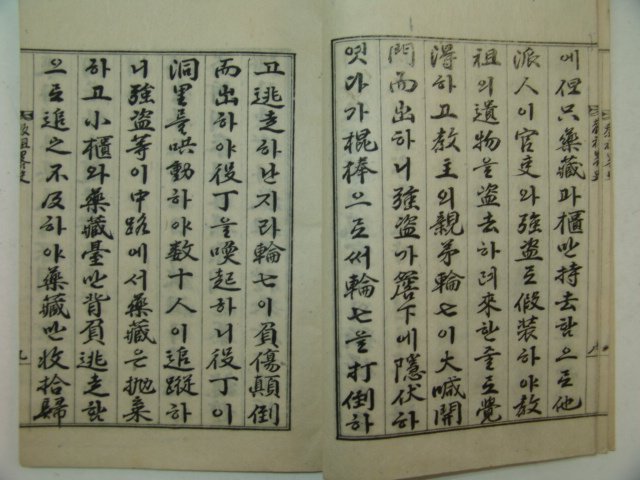 에但只藥藏과櫃만持去함으로他
派人이官吏와强盜로假裝하야敎
祖의遺物을盜去하려來한줄로覺
得하고敎主의親弟輪七이大喊開
門而出하니强盜가簷下에隱伏하
엿다가棍棒으로써輪七을打倒하
고逃走하난지라輪七이負傷顚倒
而出하야役丁을喚起하니役丁이
洞里를哄動하야数十人이追蹤하
니强盜等이中路에서藥藏은抛棄
하고小櫃와藥藏臺만背負逃走함
으로追之不及하야藥藏만收拾歸
九